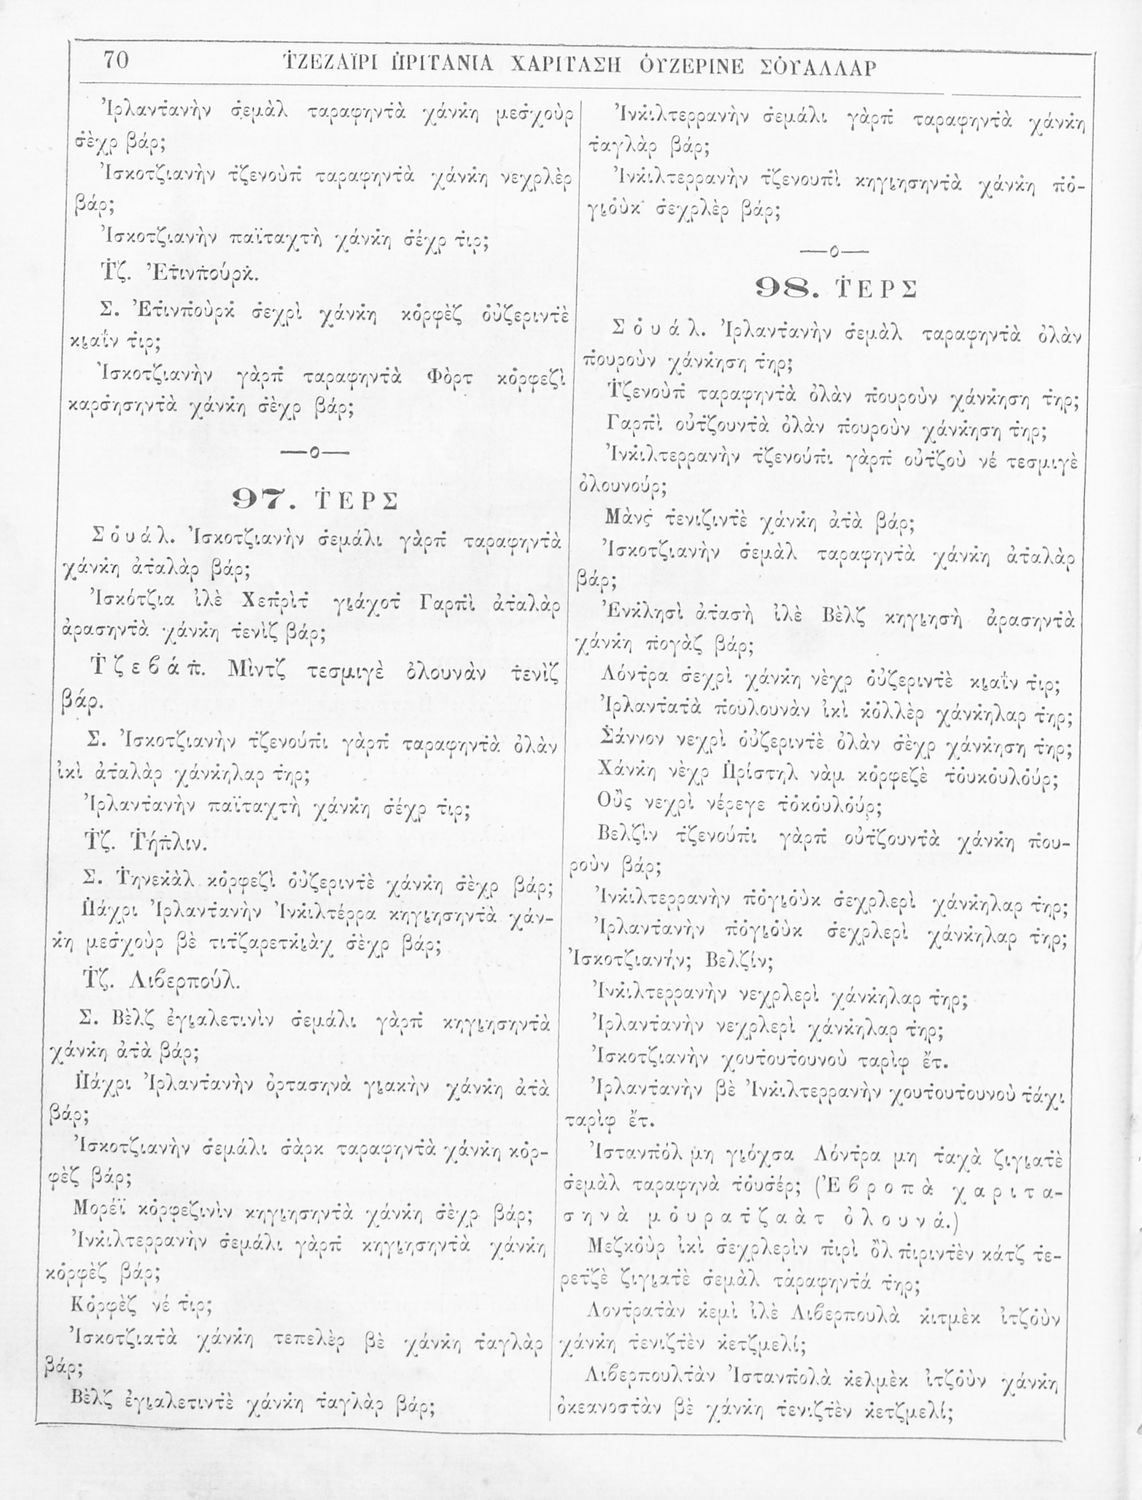 70 ṪΖΕΖΑΪΡΙ Π̇ΡΙΤΑΝΙΑ ΧΑΡΙΤΑΣΗ ΟΥ̓ΖΕΡΙΝΕ ΣΟΥΑΛΛΑΡ
Ἰρλανṫανὴν σ̇εμὰλ ταραφηνṫὰ χάνκ̇η μεσ̇χοὺρ
σ̇ὲχρ βάρ;
Ἰσκοτζιανὴν ṫζενοὺπ̇ ταραφηνṫὰ χάνκ̇η νεχρλὲρ
βάρ;
Ἰσκοτζιανὴν παϊταχτὴ χάνκ̇η σ̇έχρ ṫιρ;
Ṫζ. Ἐṫινπ̇ούρκ̇.
Σ. Ἐṫινπ̇οὺρκ̇ σ̇εχρὶ χάνκ̇η κὀρφὲζ οὐζεριντὲ
κιαΐν ṫιρ;
Ἰσκοτζιανὴν γὰρπ̇ ταραφηνṫὰ Φὸρτ κὀρφεζὶ
καρσ̇ησηνṫὰ χάνκ̇η σ̇ὲχρ βάρ;
—ο—
97. ṪΕΡΣ
Σουάλ. Ἰσκοτζιανὴν σ̇εμάλι γὰρπ̇ ταραφηνṫὰ
χάνκ̇η ἀṫαλὰρ βάρ;
Ἰσκότζια ἰλὲ Χεπ̇ρὶṫ γιάχοṫ Γαρπ̇ὶ ἀṫαλὰρ
ἀρασηνṫὰ χάνκ̇η τενὶζ βάρ;
Ṫζεβάπ̇. Μὶντζ τεσμιγὲ ὀλουνὰν ṫενὶζ
βάρ.
Σ. Ἰσκοτζιανὴν ṫζενούπ̇ι γὰρπ̇ ταραφηνṫὰ ὀλὰν
ἰκὶ ἀṫαλὰρ χάνκ̇ηλαρ ṫηρ;
Ἰρλανṫανὴν παϊταχτὴ χάνκ̇η σ̇έχρ ṫιρ;
Ṫζ. Ṫήπ̇λιν.
Σ. Ṫηνεκ̇ὰλ κὀρφεζὶ οὐζεριντὲ χάνκ̇η σ̇ὲχρ βάρ;
Π̇άχρι Ἰρλανṫανὴν Ἰνκ̇ιλτέρρα κηγιησηνṫὰ χάν-
κ̇η μεσ̇χοὺρ βὲ τιτζαρετκιὰχ σ̇ὲχρ βάρ;
Ṫζ. Λιβερπούλ.
Σ. Βὲλζ ἐγιαλετινὶν σ̇εμάλι γὰρπ̇ κηγιησηνṫὰ
χάνκ̇η ἀṫὰ βάρ;
Π̇άχρι Ἰρλανṫανὴν ὀρτασηνὰ γιακὴν χάνκ̇η ἀṫὰ
βάρ;
Ἰσκοτζιανὴν σ̇εμάλι σ̇ὰρκ ταραφηνṫὰ χάνκ̇η κὀρ-
φὲζ βάρ;
Μορέϊ κὀρφεζινὶν κηγιησηνṫὰ χάνκ̇η σ̇ὲχρ βάρ;
Ἰνκ̇ιλτερρανὴν σ̇εμάλι γὰρπ̇ κηγιησηνṫὰ χάνκ̇η
κὀρφὲζ βάρ;
Κὀρφὲζ νέ ṫιρ;
Ἰσκοτζιατὰ χάνκ̇η τεπελὲρ βὲ χάνκ̇η ṫαγλὰρ
βάρ;
Βὲλζ ἐγιαλετιντὲ χάνκ̇η ṫαγλὰρ βάρ;
Ἰνκ̇ιλτερρανὴν σ̇εμάλι γὰρπ̇ ταραφηνṫὰ χάνκ̇η
ṫαγλὰρ βάρ;
Ἰνκ̇ιλτερρανὴν ṫζενουπ̇ὶ κηγιησηνṫὰ χάνκ̇η π̇ὀ-
γιοὺκ σ̇εχρλὲρ βάρ;
—ο—
98. ṪΕΡΣ
Σουάλ. Ἰρλανṫανὴν σ̇εμὰλ ταραφηνṫὰ ὀλὰν
π̇ουροὺν χάνκ̇ηση ṫηρ;
Ṫζενοὺπ̇ ταραφηνṫὰ ὀλὰν π̇ουροὺν χάνκ̇ηση ṫηρ;
Γαρπ̇ὶ οὐṫζουνṫὰ ὀλὰν π̇ουροὺν χάνκ̇ηση ṫηρ;
Ἰνκ̇ιλτερρανὴν ṫζενούπ̇ι γὰρπ̇ οὐṫζοὺ νέ τεσμιγὲ
ὀλουνούρ;
Μὰνσ̇ τενιζιντὲ χάνκ̇η ἀṫὰ βάρ;
Ἰσκοτζιανὴν σ̇εμὰλ ταραφηνṫὰ χάνκ̇η ἀṫαλὰρ
βάρ;
Ἐνκλησὶ ἀṫασὴ ἰλὲ Βὲλζ κηγιησὴ ἀρασηνṫὰ
χάνκ̇η π̇ογὰζ βάρ;
Λόντρα σ̇εχρὶ χάνκ̇η νὲχρ οὐζεριντὲ κιαΐν ṫιρ;
Ἰρλανṫατὰ π̇ουλουνὰν ἰκὶ κ̇ὀλλὲρ χάνκ̇ηλαρ ṫηρ;
Σ̇άννον νεχρὶ οὐζεριντὲ ὀλὰν σ̇ὲχρ χάνκ̇ηση ṫηρ;
Χάνκ̇η νὲχρ Π̇ρίστηλ νὰμ κὀρφεζὲ ṫουκουλούρ;
Οὒς νεχρὶ νέρεγε ṫοκουλούρ;
Βελζὶν ṫζενούπ̇ι γὰρπ̇ οὐṫζουνṫὰ χάνκ̇η π̇ου-
ροὺν βάρ;
Ἰνκ̇ιλτερρανὴν π̇ὀγιοὺκ σ̇εχρλερὶ χάνκ̇ηλαρ ṫηρ;
Ἰρλανṫανὴν π̇ὀγιοὺκ σ̇εχρλερὶ χάνκ̇ηλαρ ṫηρ;
Ἰσκοτζιανήν; Βελζίν;
Ἰνκ̇ιλτερρανὴν νεχρλερὶ χάνκ̇ηλαρ ṫηρ;
Ἰρλανṫανὴν νεχρλερὶ χάνκ̇ηλαρ ṫηρ;
Ἰσκοτζιανὴν χουṫουṫουνοὺ ταρὶφ ἔτ.
Ἰρλανṫανὴν βὲ Ἰνκ̇ιλτερρανὴν χουṫουṫουνοὺ ṫάχι
ταρὶφ ἔτ.
Ἰστανπ̇όλ μη γιόχσα Λόντρα μη ṫαχὰ ζιγιατὲ
σ̇εμὰλ ταραφηνὰ ṫουσ̇έρ; (Ἐβροπὰ χαριτα-
σηνὰ μουρατζαὰτ ὀλουνά.)
Μεζκ̇οὺρ ἰκὶ σ̇εχρλερὶν π̇ιρὶ ὂλ π̇ιριντὲν κάτζ τε-
ρετζὲ ζιγιατὲ σ̇εμὰλ τὰραφηντά ṫηρ;
Λοντρατὰν κ̇εμὶ ἰλὲ Λιβερπουλὰ κ̇ιτμὲκ ἰτζοὺν
χάνκ̇η τενιζτὲν κ̇ετζμελί;
Λιβερπουλτὰν Ἰστανπ̇ολὰ κ̇ελμὲκ ἰτζοὺν χάνκ̇η
ὀκεανοστὰν βὲ χάνκ̇η τενιζτὲν κ̇ετζμελί;